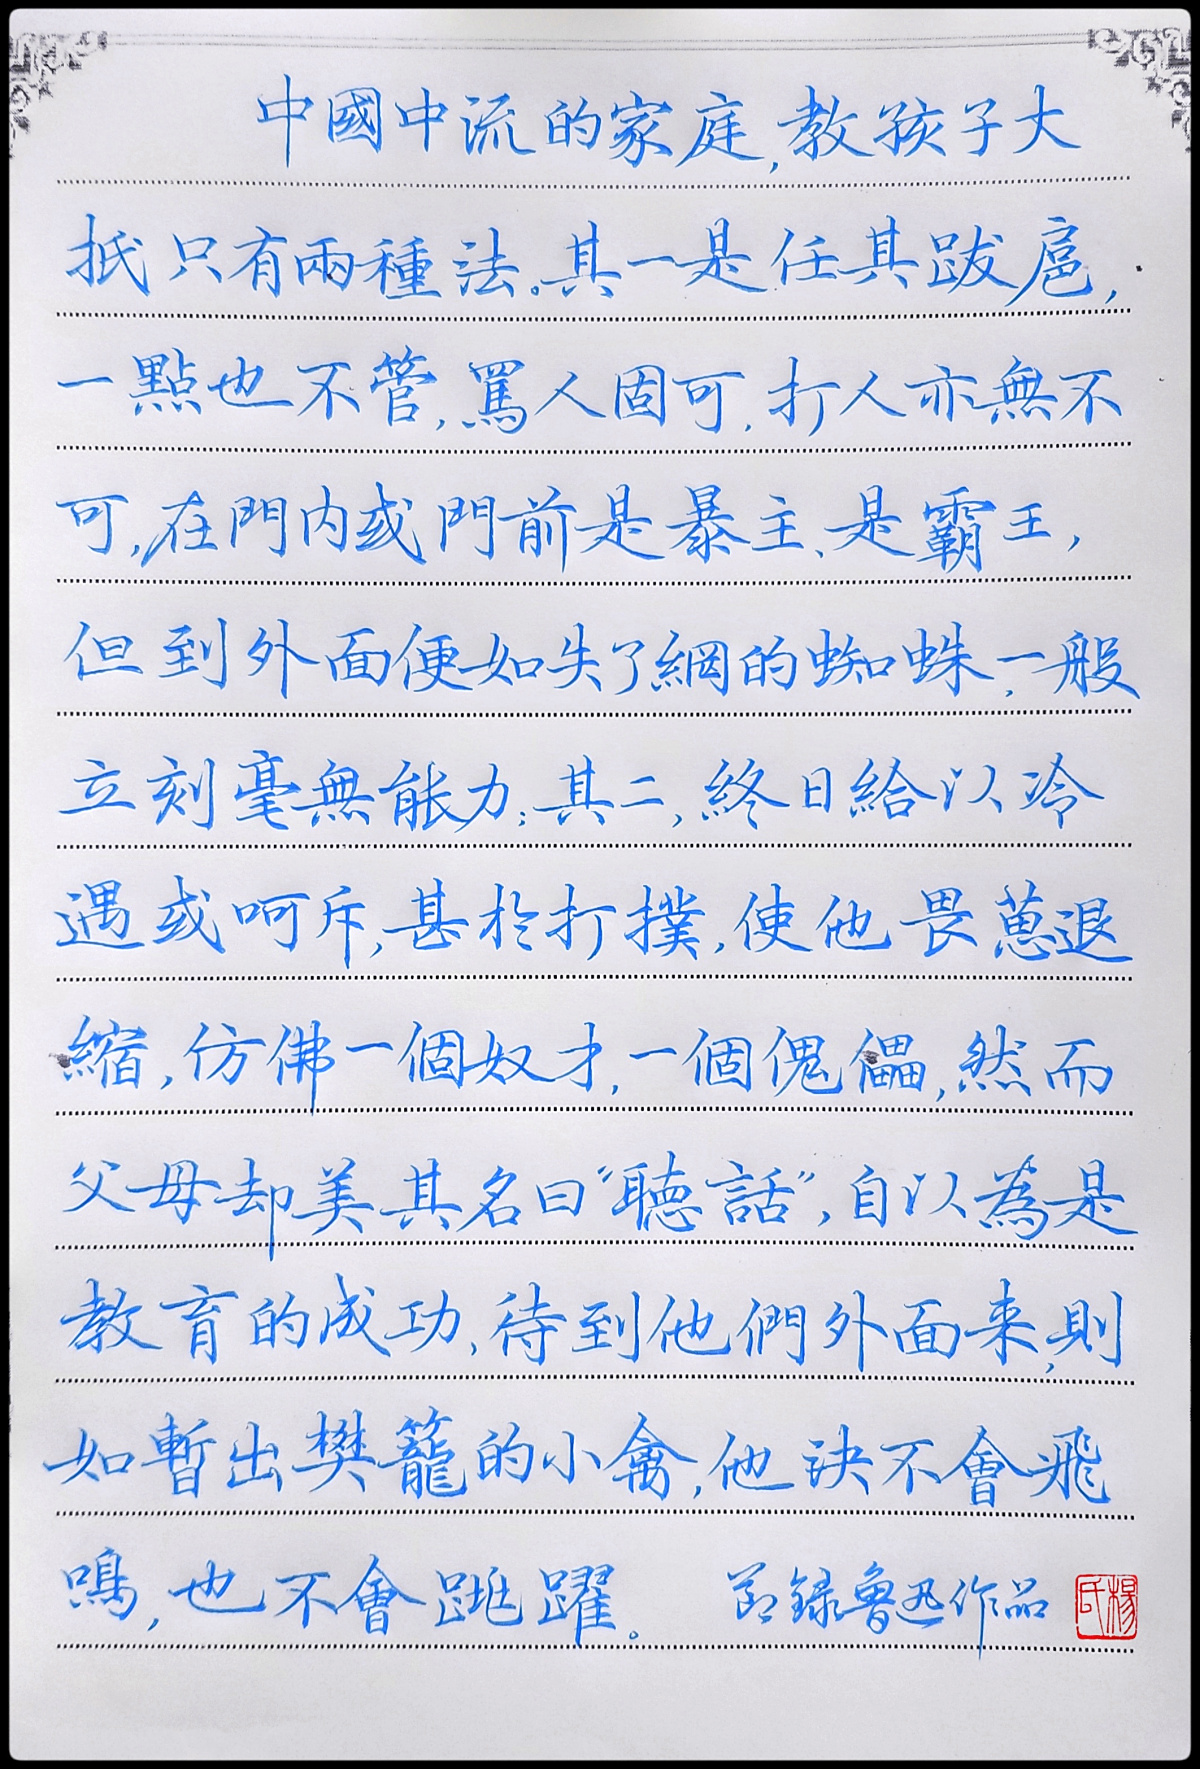 中國中流的家庭,教孩子大
抵只有兩種法。其一是任其跋扈,
一點也不管,罵人固可,打人亦無不
可,在門内或門前是暴主、是霸王,
但到外面便如失了網的蜘蛛,一般
立刻毫無能力;其二,終日給以冷
遇或呵斥,甚於打撲,使他畏葸退
縮,仿佛一個奴才,一個傀儡,然而
父母却美其名曰“聽話”,自以為是
教育的成功,待到他們外面來,則
如暫出樊籠的小禽,他決不會飛
鳴,也不會跳躍。 节録魯迅作品
楊氏